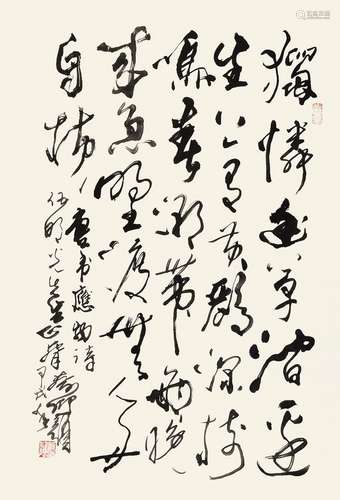 獨憐幽草澗邊
生上有黃鸝深樹
鳴春潮帶雨晚
來急野渡無人舟
自橫 唐韋應物詩
明先生正